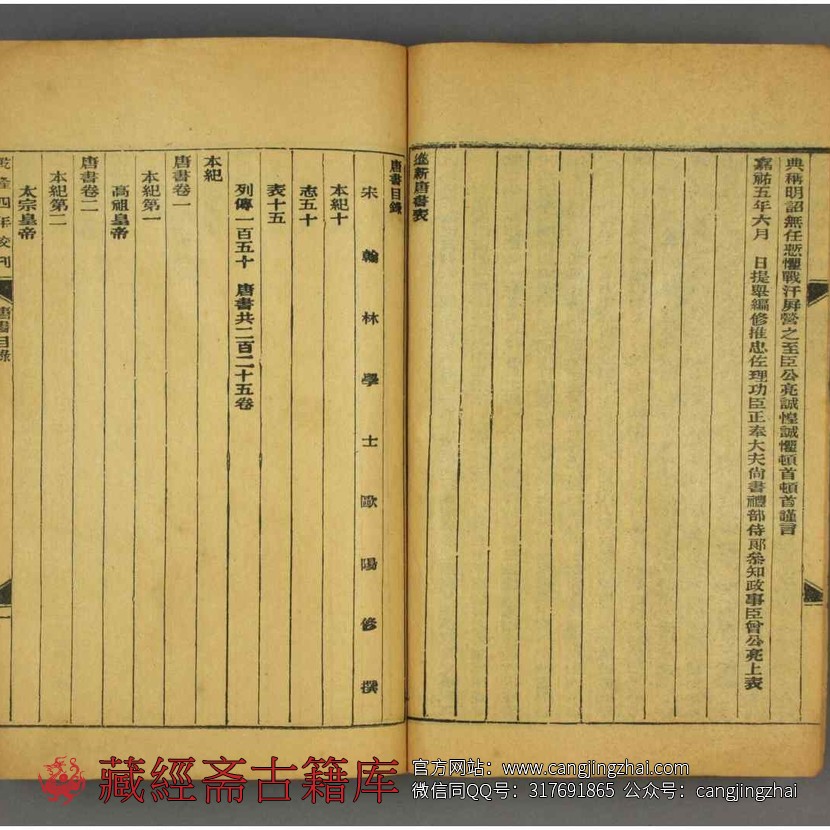 典稱明詔無任慙懼戰汗屛營之至臣公亮誠惶誠懼頓首頓首謹言
嘉祐五年六月　日提舉編修推忠佐理功臣正奉大夫尚書禮部侍郞參知政事臣曾公亮上表
進新唐書表
唐書目錄
宋翰林學士歐陽修撰
本紀十
志五十
表十五
列傳一百五十　唐書共二百二十五卷
本紀
唐書卷一
本紀第一
高祖皇帝
唐書卷二
本紀第二
太宗皇帝
乾隆四年校刊
唐書目錄
一
藏經斋古籍库
官方网站：www.cangjingzhai.com
微信同QQ号：317691865 公众号：cangjingzhai